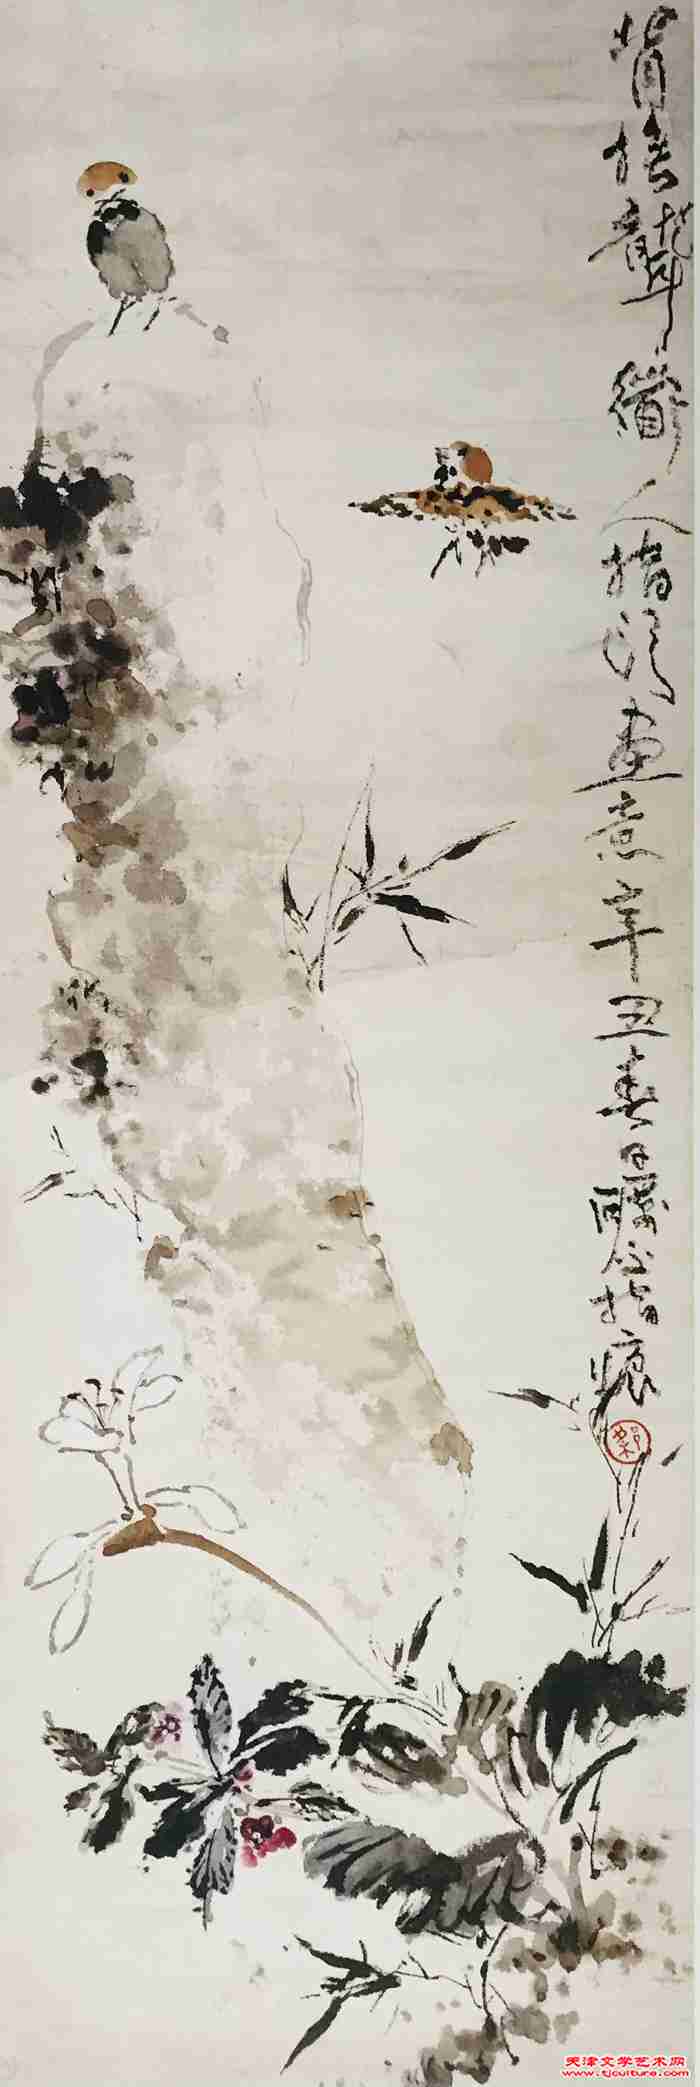 背聾道人指头畫意辛丑春日指痕
天津文学艺术网
www.tjculture.com